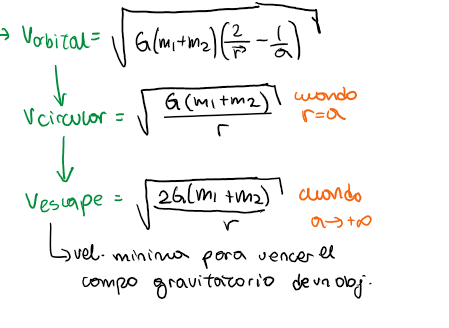 → Vorbital = √(G(m₁+m₂)(2/r − 1/a))
Vcircular = √(G(m₁+m₂)/r) cuando r=a
Vescape = √(2G(m₁+m₂)/r) cuando a→+∞
↳ vel. minima para vencer el
campo gravitatorio de un obj.